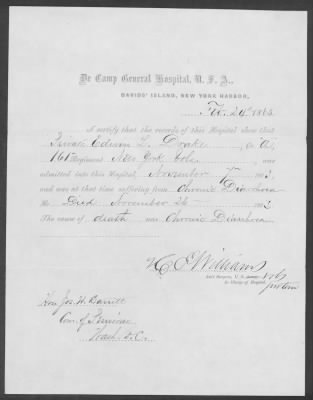 De Camp General Hospital, U. S. A.,
DAVIDS' ISLAND, NEW YORK HARBOR,
Feb. 24th 1865
I certify that the records of this Hospital show that
Private Edwin L. Drake, Co. A,
161st Regiment New York Vols, was
admitted into this Hospital, November 1862,
and was at that time suffering from Chronic Diarrhoea
He Died November 26 1862
The cause of death was Chronic Diarrhoea
C E Williams
Ass't Surgeon, U. S.
In Charge of Hospital, protem
Hon. Jos. H. Barrett
Com. of Pensions
Wash. D.C.